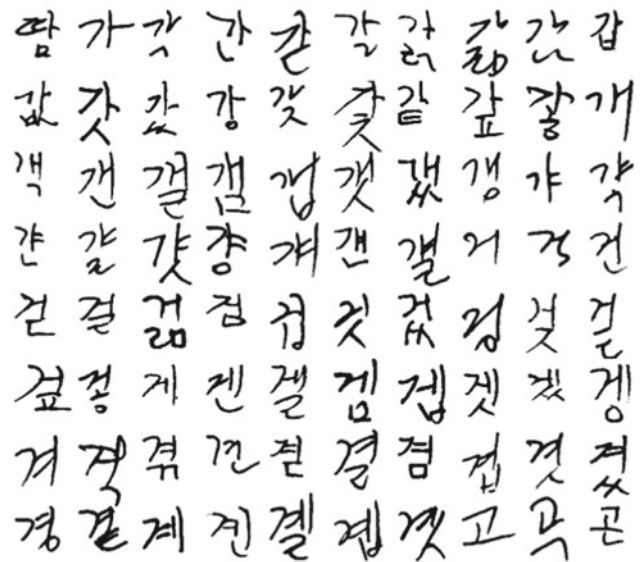 땀 가 각 간 갇 갈 갉 갊 감 갑
값 갓 갔 강 갖 갗 같 갚 갛 개
객 갠 갤 갬 갭 갯 갰 갱 갸 갹
갼 걀 걋 걍 걔 걘 걜 거 걱 건
걷 걸 걺 검 겁 것 겄 겅 겆 겉
겊 겋 게 겐 겔 겜 겝 겟 겠 겡
겨 격 겪 견 겯 결 겸 겹 겻 겼
경 곁 계 곈 곌 곕 곗 고 곡 곤